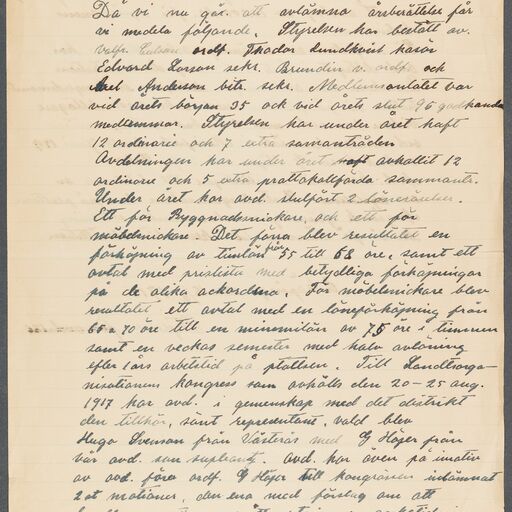 Då vi nu går att avlämna årsberättelse får
vi medela följande. Styrelsen har bestått av.
ordf. Thodor Lundkvist kasör
Edvard Larson sekr. Brundin v. ordf. och
Axel Anderson bitr. sekr. Medlemsantalet var
vid årets början 35 och vid årets slut 96 godkända
medlemmar. Styrelsen har under året haft
12 ordinarie och 7 extra samanträden
Avdelningen har under året haft avhållit 12
ordinarie och 5 extra prattokollförda sammantr.
Under året har avd. slutfört 2 lönerörelser.
Ett för Byggnadssnickare, och ett för
möbelsnickare. Det förra blev resultatet en
förhöjning av timlön från 55 till 68 öre, samt ett
avtal med prislista med betydliga förhöjningar
på de olika ackorderna. För möbelsnickare blev
resultatet ett avtal med en löneförhöjning från
65 a 70 öre till en minemilön av 75 öre i timmen
samt en veckas semester med halv avlöning
efter 1 års arbetstid på plattsen. Till Landsorga-
nisationens kongress som avhölls den 20-25 aug.
1917 har avd. i gemenskap med det distrikt
den tillhör, sänt representant, vald blev
Hugo Svenson från Västerås med G Höjer från
vår avd. som supleant. Avd. har även på inativ
av avd. förra ordf. G Höjer till kongressen inlämnat
2st motioner, den ena med förslag om att